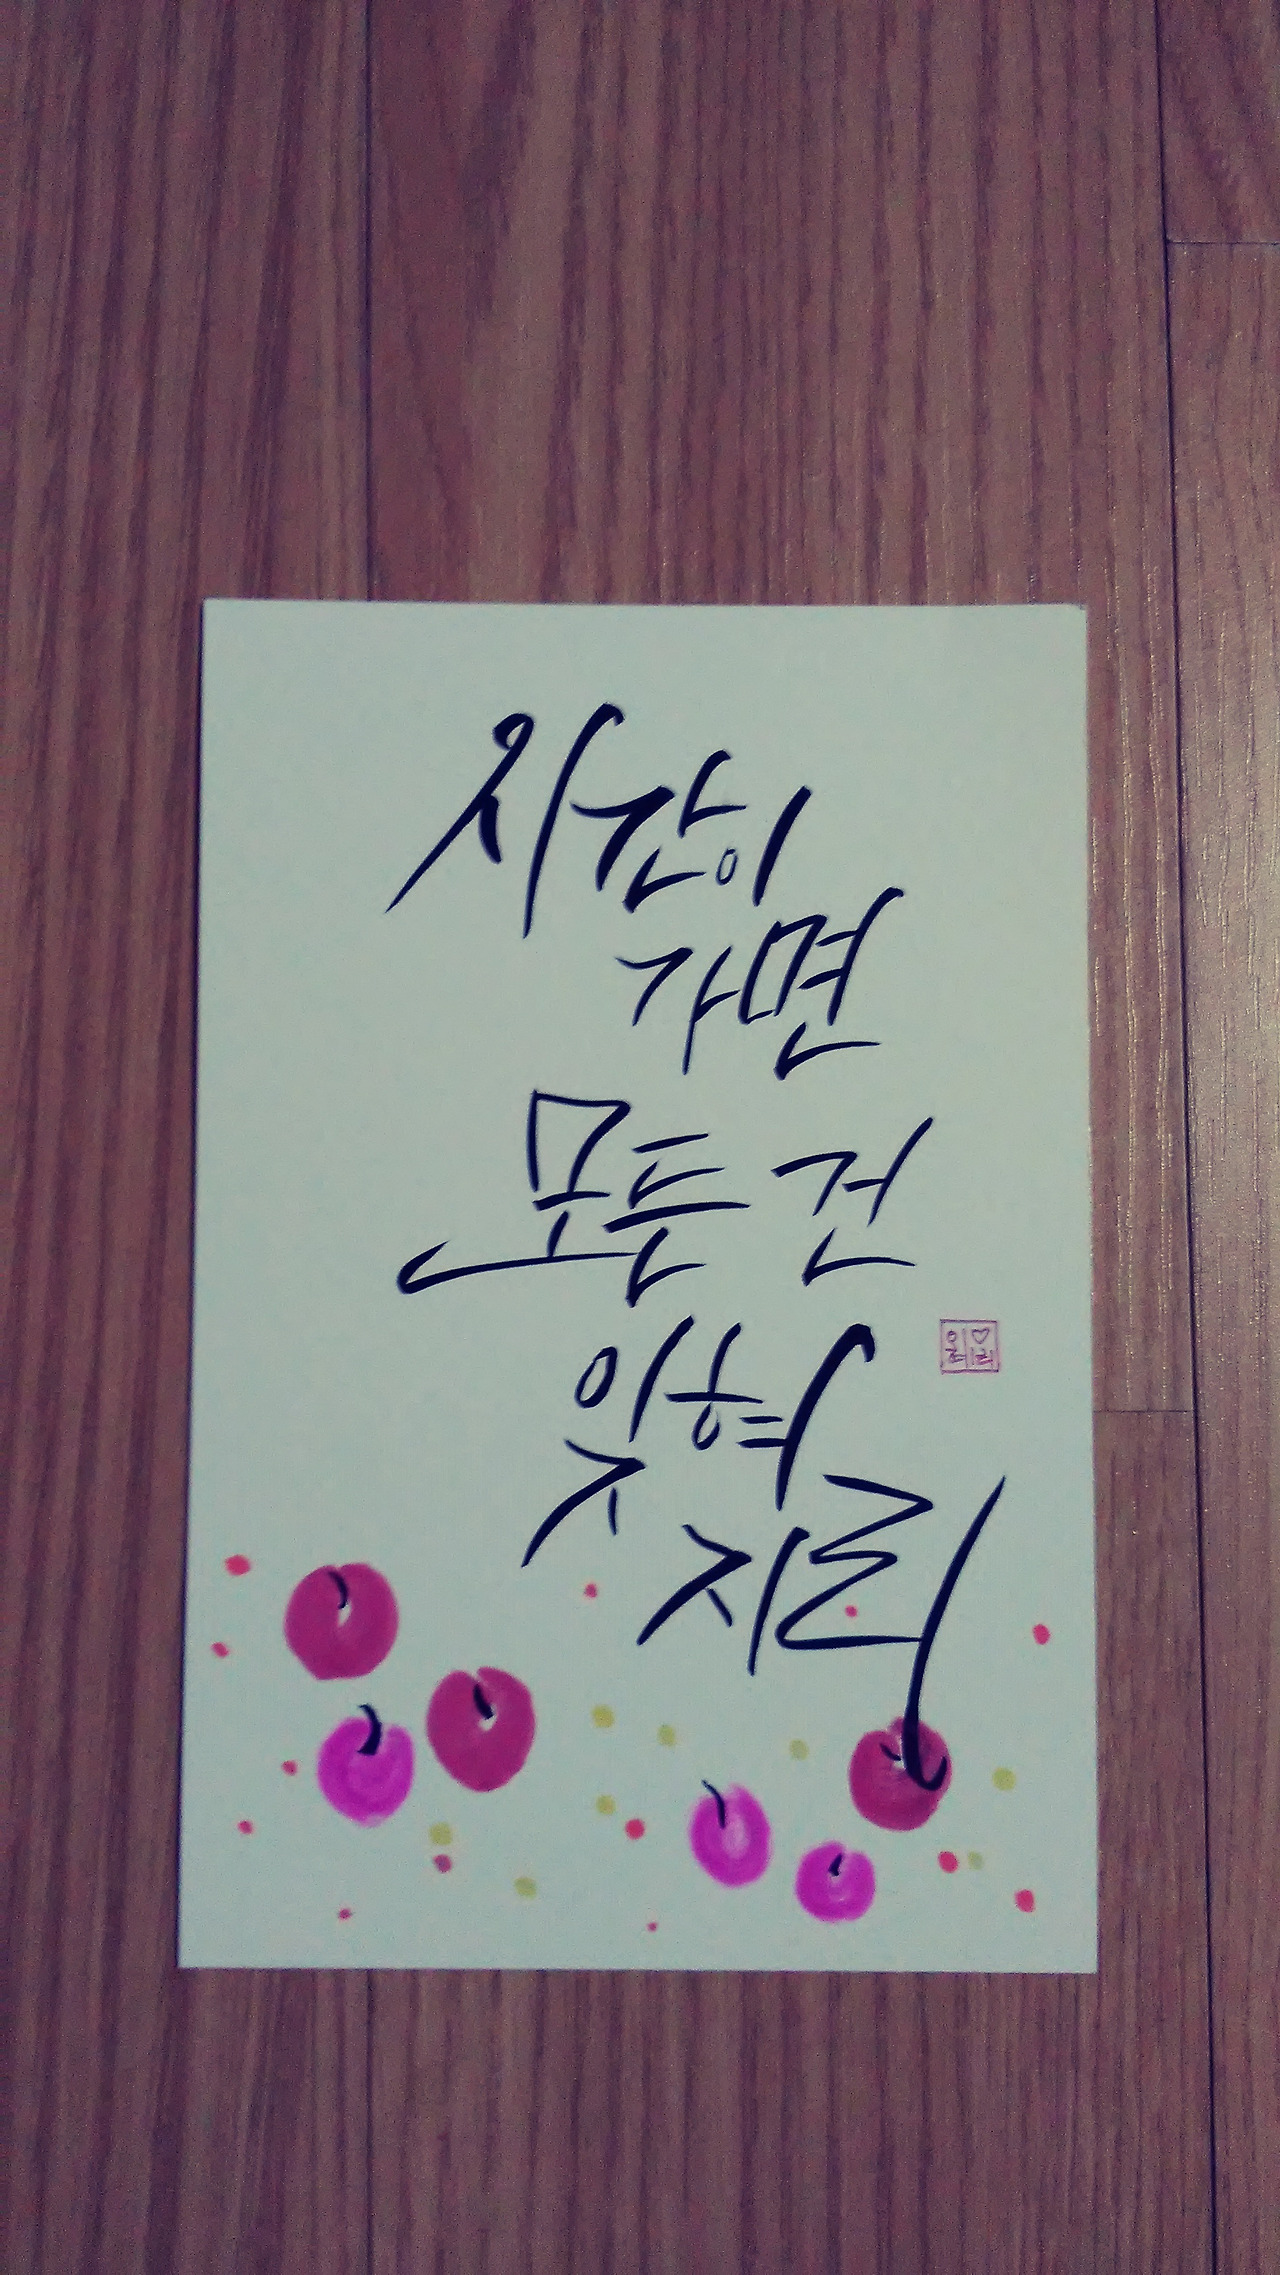 시간이
가면
모든 건
잊혀
지리